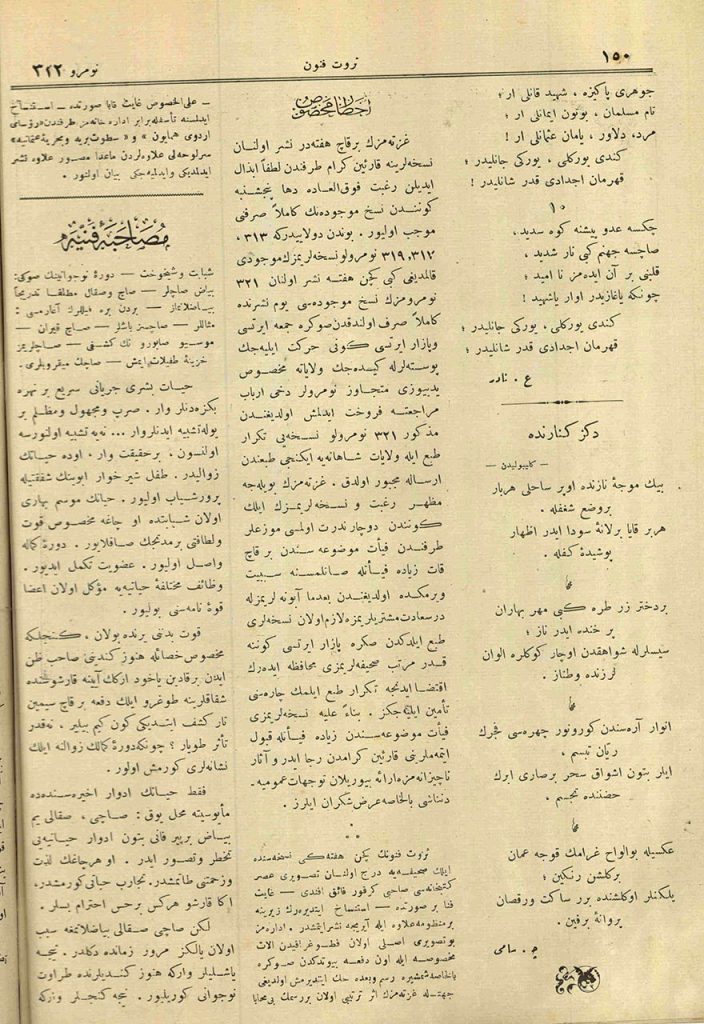 ١٥٠
ثروت فنون
نومرو ٣٢٢
جوهری پاکیزه ، شهید قانلی ار ؛
تام مسلمان ، بوتون ایمانلی ار ؛
مرد، دلاور ، یامان عثمانلی ار !
کندی یورکلی ، یورکی جانلیدر ؛
قهرمان اجدادی قدر شانلیدر !
١٠
چکسه عدو پیشنه کوه سدید ،
صاچسه جهنم کبی نار شدید ،
قلبنی بر آن ایده‌مز نا امید ؛
چونکه یا غازیدر اوار یا شهید !
کندی یورکلی ، یورکی جانلیدر ؛
قهرمان اجدادی قدر شانلیدر !
ع . نادر
دکز کنارنده
— کلیبولیدن —
بیك موجهٔ نازنده اوپر ساحلی هربار
بر وضع شغفله .
هر بر قایا برلانهٔ سودا ایدر اظهار
پوشیدهٔ کفله .
بردختر زر طره کبی مهر بهاران
پر خنده ایدر ناز ؛
سیسلرله شواهقدن اوچار کوکلره الوان
لرزنده وطناز .
انوار آره‌سندن کورونور چهره‌سی فجرك
ریان تبسم ،
ایلر بتون اشواق سحر بر صاری ابرك
حضننده تجسم .
عکسیله بو الواح غرامك قوجه عمان
بر کلشن رنکین ؛
یلکنلر اوکلشنده برر ساکت ورقصان
پروانهٔ برفین .
چ . سامی
اخطار مخصوص
غزته‌مزك برقاچ هفته‌در نشر اولنان
نسخه‌لرینه قارئین کرام طرفندن لطفاً ابذال
ایدیلن رغبت فوق‌العاده دها پنجشنبه
کونندن نسخ موجوده‌نك کاملاً صرفنی
موجب اولیور . بوندن دولاییدرکه ٣١٣ ،
٣١٧، ٣١٩ نومرولو نسخه‌لریمزك موجودی
قالمدیغی کبی کچن هفته نشر اولنان ٣٢١
نومرومزك نسخ موجوده‌سی یوم نشرنده
کاملاً صرف اولندقدن صوکره جمعه ایرتسی
وبازار ایرتسی کونی حرکت ایلیه‌جك
پوسته‌لرله کیده‌جك ولایاته مخصوص
یدییوزی متجاوز نومرولر دخی ارباب
مراجعته فروخت ایدلمش اولدیغندن
مذکور ٣٢١ نومرولو نسخه‌یی تکرار
طبع ایله ولایات شاهانه‌یه ایکنجی طبعندن
ارساله مجبور اولدق . غزته‌مزك بویله‌جه
مظهر رغبت و نسخه‌لریمزك ایلك
کونندن دوچار ندرت اولمسی موزعلر
طرفندن فیأت موضوعه‌سندن بر قاچ
قات زیاده فیأتله صاتلمسنه سببیت
ویرمکده اولدیغندن بعدما آبونه لریمزله
درسعادت مشتریلریمزه لازم اولان نسخه‌لری
طبع ایلدکدن صکره پازار ایرتسی کوننه
قدر مرتب صحیفه‌لریمزی محافظه ایده‌رك
اقتضا ایدنجه تکرار طبع ایلمك چاره‌سی
تأمین ایلیه‌جکز . بناءً علیه نسخه‌لریمزی
فیأت موضوعه‌سندن زیاده فیأتله قبول
ایتمه‌ملرینی قارئین کرامدن رجا ایدر و آثار
ناچیزانه‌مزه ارائه بیوریلان توجهات عمومیه .
دن ناشی بالخاصه عرض شکران ایلرز .
ثروت فنونك کچن هفته‌کی نسخه‌سنده
ایلك صحیفه‌یه درج اولنان تصویری عصر
کتبخانه‌سی صاحبی کرقور فائق افندی — غایت
فنا بر صورتده — استنساخ ایتدیره‌رك زیرینه
بر منظومه علاوه ایله آیریجه نشر ایتمشدر . اداره‌مز
بو تصویری اصلی اولان فطوغرافیدن آلات
مخصوصه ایله اون دفعه بیوتدکدن صوکره
بالخاصه شمشیره رسم وبعده حك ایتدیرمش اولدیغی
جهتله غزته‌مزك اثر ترتیبی اولان بو رسمك بی‌محابا
— علی‌الخصوص غایت قابا صورتده — استنساخ
ایدلمسنه تأسفله برابر اداره خانه‌مز طرفندن «رؤسای
اردوی همایون » و « سطوت بریه وبحریهٔ عثمانیه»
سرلوحه‌لی علاوه‌لردن ماعدا مصور علاوه نشر
ایدلمدیکی وایدلمیه‌جکی بیان اولنور .
مصاحبهٔ فنیه
شبابت وشیخوخت — دورهٔ نوجوانینك صوکی:
بیاض صاچلر — صاچ وصقال مطلقا تدریجاً
بیاضلانماز — بردن بره قیللرك آغارمسی :
مثاللر — صاچسز باشلر — صاچ قیران —
موسیو صابورو نك کشفی — صاچلریمز
خزینهٔ طفیلات ایمش — صاچك میقروبلری.
حیات بشری جریانی سریع بر نهره
بکزه‌دنلر وار . صرپ ومجهول ومظلم بر
یوله تشبیه ایدنلر وار ... نه‌یه تشبیه اولنورسه
اولنسون ، بر حقیقت وار ، اوده حیاتك
زوالیدر . طفل شیرخوار ابوینك شفقتیله
پرورشیاب اولیور . حیاتك موسم بهاری
اولان شبابتده او چاغه مخصوص قوت
ولطافتی برمدتجك صاقلایور . دورهٔ کماله
واصل اولیور . عضویت تکمل ایدیور .
وظائف مختلفهٔ حیاتیه‌یه مؤکل اولان اعضا
قوهٔ نامه‌سنی بولیور .
قوت بدنی یرنده بولان ، کنجلکه
مخصوص خصائله هنوز کندینی صاحب ظن
ایدن بر قادین یاخود ارکك آیینه قارشوسنده
شقاقلرینه طوغرو ایلك دفعه بر قاچ سیمین
تار کشف ایتدیکی کون کیم بیلیر ، نه‌قدر
تأثر طویار ؟ چونکه دورهٔ کمالك زوالنه ایلك
نشانه‌لری کورمش اولور .
فقط حیاتك ادوار اخیره‌سنده
مأیوسیته محل یوق : صاچی ، صقالی بم
بیاض بر پیر فانی بتون ادوار حیاتیه‌یی
تخطر وتصور ایدر . او هر چاغك لذت
وزحمتنی طاتمشدر. تجارب حیاتی کورمشدر.
اکا قارشو هرکس بر حس احترام بسلر .
لکن صاچی صقالی بیاضلاتمغه سبب
اولان یالکز مرور زمانده دکلدر . نیجه
یاشلیلر وارکه هنوز کندیلرنده طراوت
نوجوانی کوریلیور . نیجه کنجلر وارکه